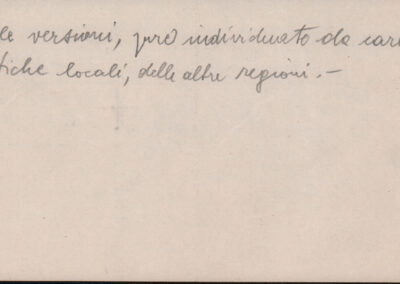 le versioni, pur individuato da car
tiche locali, delle altre regioni.—